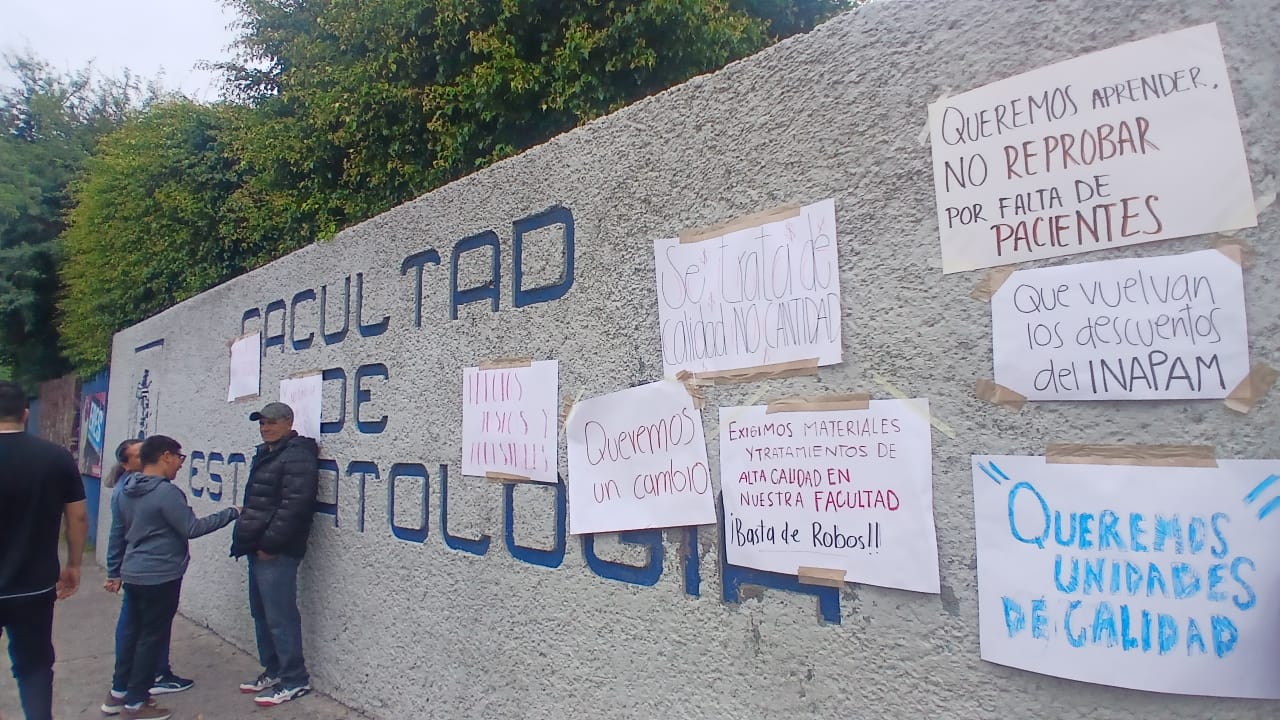 FACULTAD
DE
ESTOMATOLOGIA
Se trata de
calidad NO CANTIDAD
Queremos
un cambio
EXIGIMOS MATERIALES
Y TRATAMIENTOS DE
ALTA CALIDAD EN
NUESTRA FACULTAD
¡Basta de Robos!!
QUEREMOS APRENDER,
NO REPROBAR
POR FALTA DE
PACIENTES
Que vuelvan
los descuentos
del INAPAM
QUEREMOS
UNIDADES
DE CALIDAD